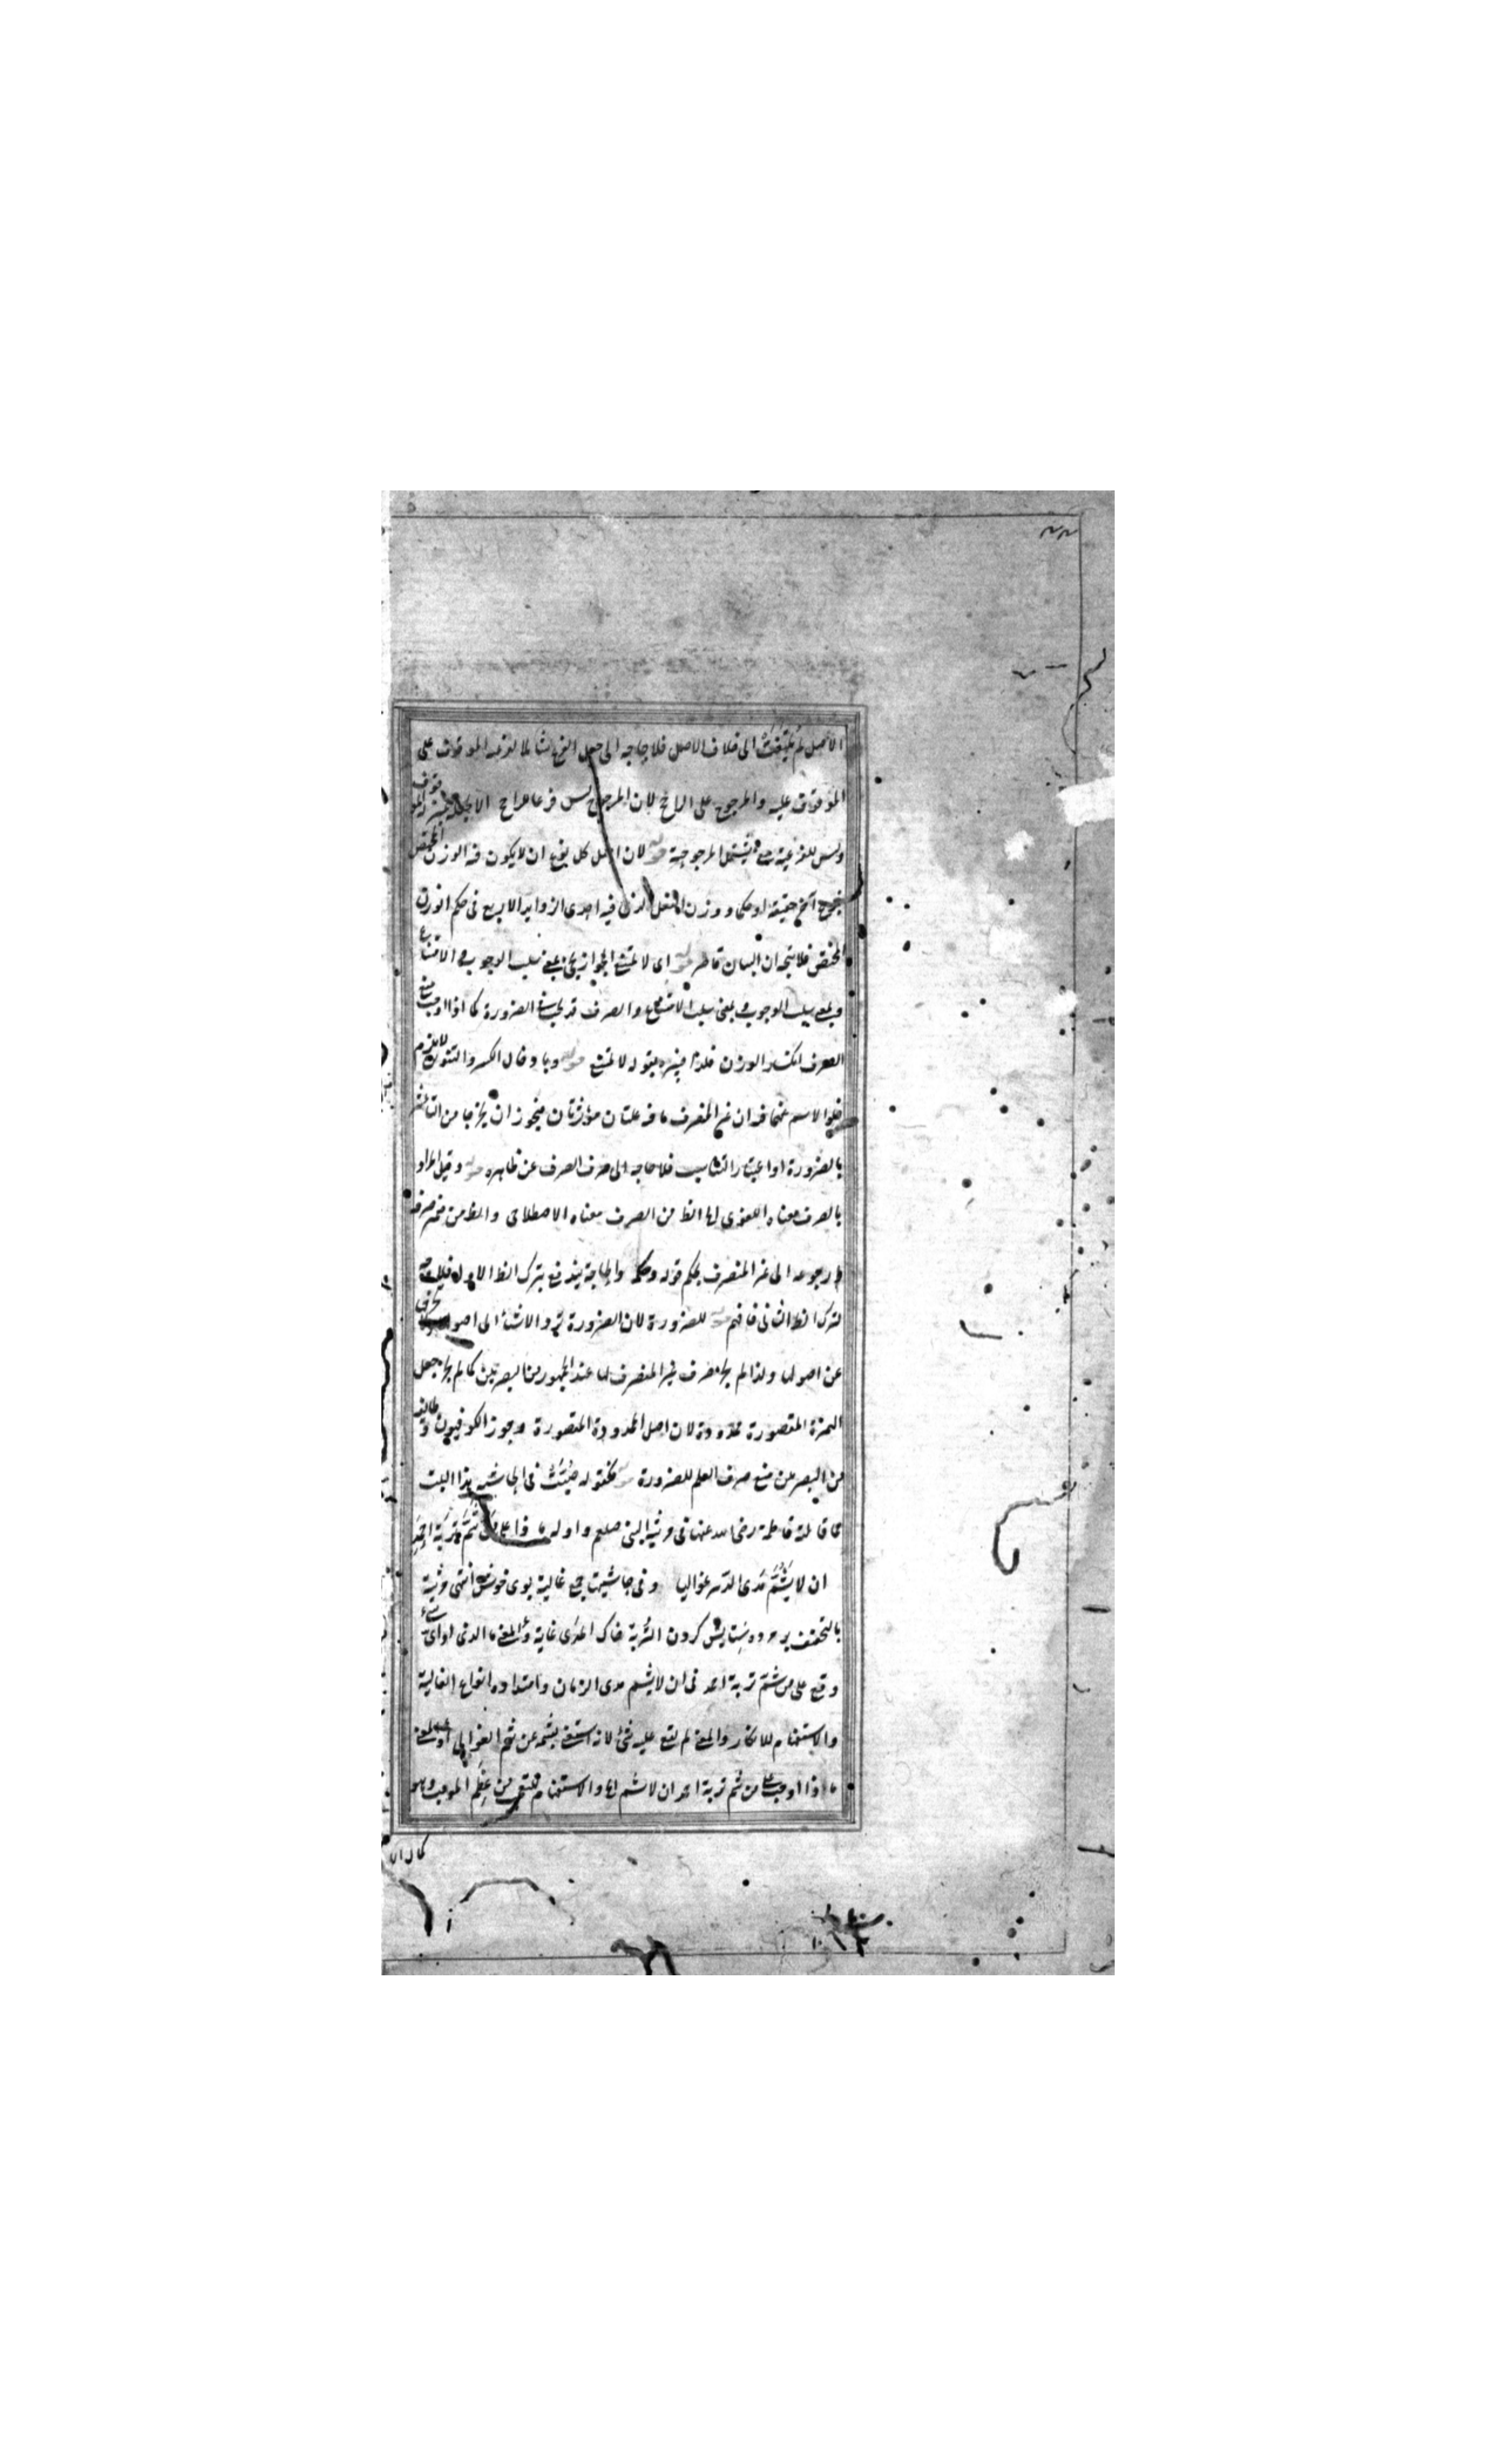 الاصل لم يلتفت الى خلاف الاصل فلا حاجة الى جعل الفرع شاملا لفرعية الموقوف على
الموقوف عليه والمرجوح على الراجح لان المرجوح ليس فرعا على راجح
وليس للفرعية معنى يشتمل المرجوحية قوله لان اصل كل نوع ان لا يكون فيه الوزن المختص
بنوع آخر حقيقة او حكما ووزن الفعل الذى فيه احدى الزوايد الاربع فى حكم الوزن
المختص فلا يتجه ان البيان قاصر قوله اى لا يمتنع الجواز يجئ بمعنى سلب الوجوب والامتناع
وبمعنى سلب الوجوب وبمعنى سلب الامتناع والصرف قد يجب فى الضرورة كما اذا اوجب منع
الصرف انكسار الوزن فلذا فسره بقوله لا يمتنع قوله وما وقال الكسر والتنوين لا يلزم
خلو الاسم عنهما فيه ان غير المنصرف ما فيه علتان مؤثرتان فيجوز ان يخرجا من التاثير
بالضرورة او اعتبار التناسب فلا حاجة الى صرف الصرف عن ظاهره قوله وقيل المراد
بالصرف معناه اللغوى لها الظ من الصرف معناه الاصطلاحى والظ من ضمير صرفه
رجوعه الى غير المنصرف بحكم قوله وحكمه والحاجة يندفع بترك الظ الاول فلا حاجة
لترك الظ الثانى فافهم قوله للضرورة لان الضرورة ترد الاشياء الى اصولها
عن اصولها ولذا لم يجز صرف غير المنصرف لها عند الجمهور من البصريين كما لم يجز جعل
الهمزة المقصورة ممدودة لان اصل الممدودة المقصورة وجوز الكوفيون وطائفة
من البصريين منع صرف العلم للضرورة قوله كقوله صُبَّتْ فى الحاشية هذا البيت
مما قالته فاطمة رضى الله عنها فى مرثية النبى صلعم واوله ما ذا على من شَمَّ تربة احمد
ان لا يَشَمَّ مَدَى الدهر غواليا وفى حاشيته جمع غالية بوى خوش انتهى مرثية
بالتخفيف بر مرده ستايش كردن التربة خاك المدى غاية والمعنى ما الذى او اى شئ
وقع على من شم تربة احمد فى ان لا يشم مدى الزمان وامتداده انواع الغالية
والاستفهام للانكار والمعنى لم يقع عليه شئ لانه استغنى بشمه عن شم الغوالى او المعنى
ما ذا اوجب على من شم تربة احمد ان لا شم لها والاستفهام للتعجب من عِظَم الموجب وهو
كمال ال